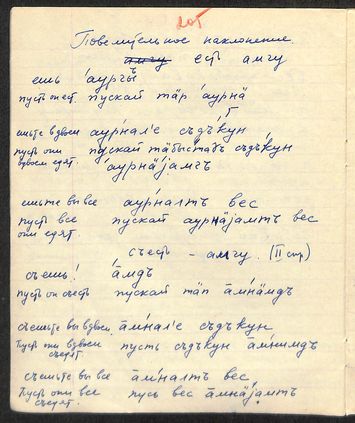 Повелительное наклонение.
есть амгу
ешь аургъ
пусть он ест. пускай тӓр аурнӓ
ешьте вдвоем аурнал'е съдъкун
пусть они вдвоем едят. пускай съдъкун
аурнӓјамгъ
ешьте вы все аурналтъ вес
пусть все они едят. пускай аурнӓјамтъ вес
съесть - амгу. (II спр)
съешь! а̄мдъ
пусть он съест пускай тӓп а̄мнӓмдъ
съешьте вы вдвоем а̄мнал'е съдъкун
Пусть они вдвоем съедят. пусть съдъкун а̄мнимдъ
съешьте вы все а̄мналтъ вес
Пусть они все съедят. пусь вес а̄мнӓјамтъ